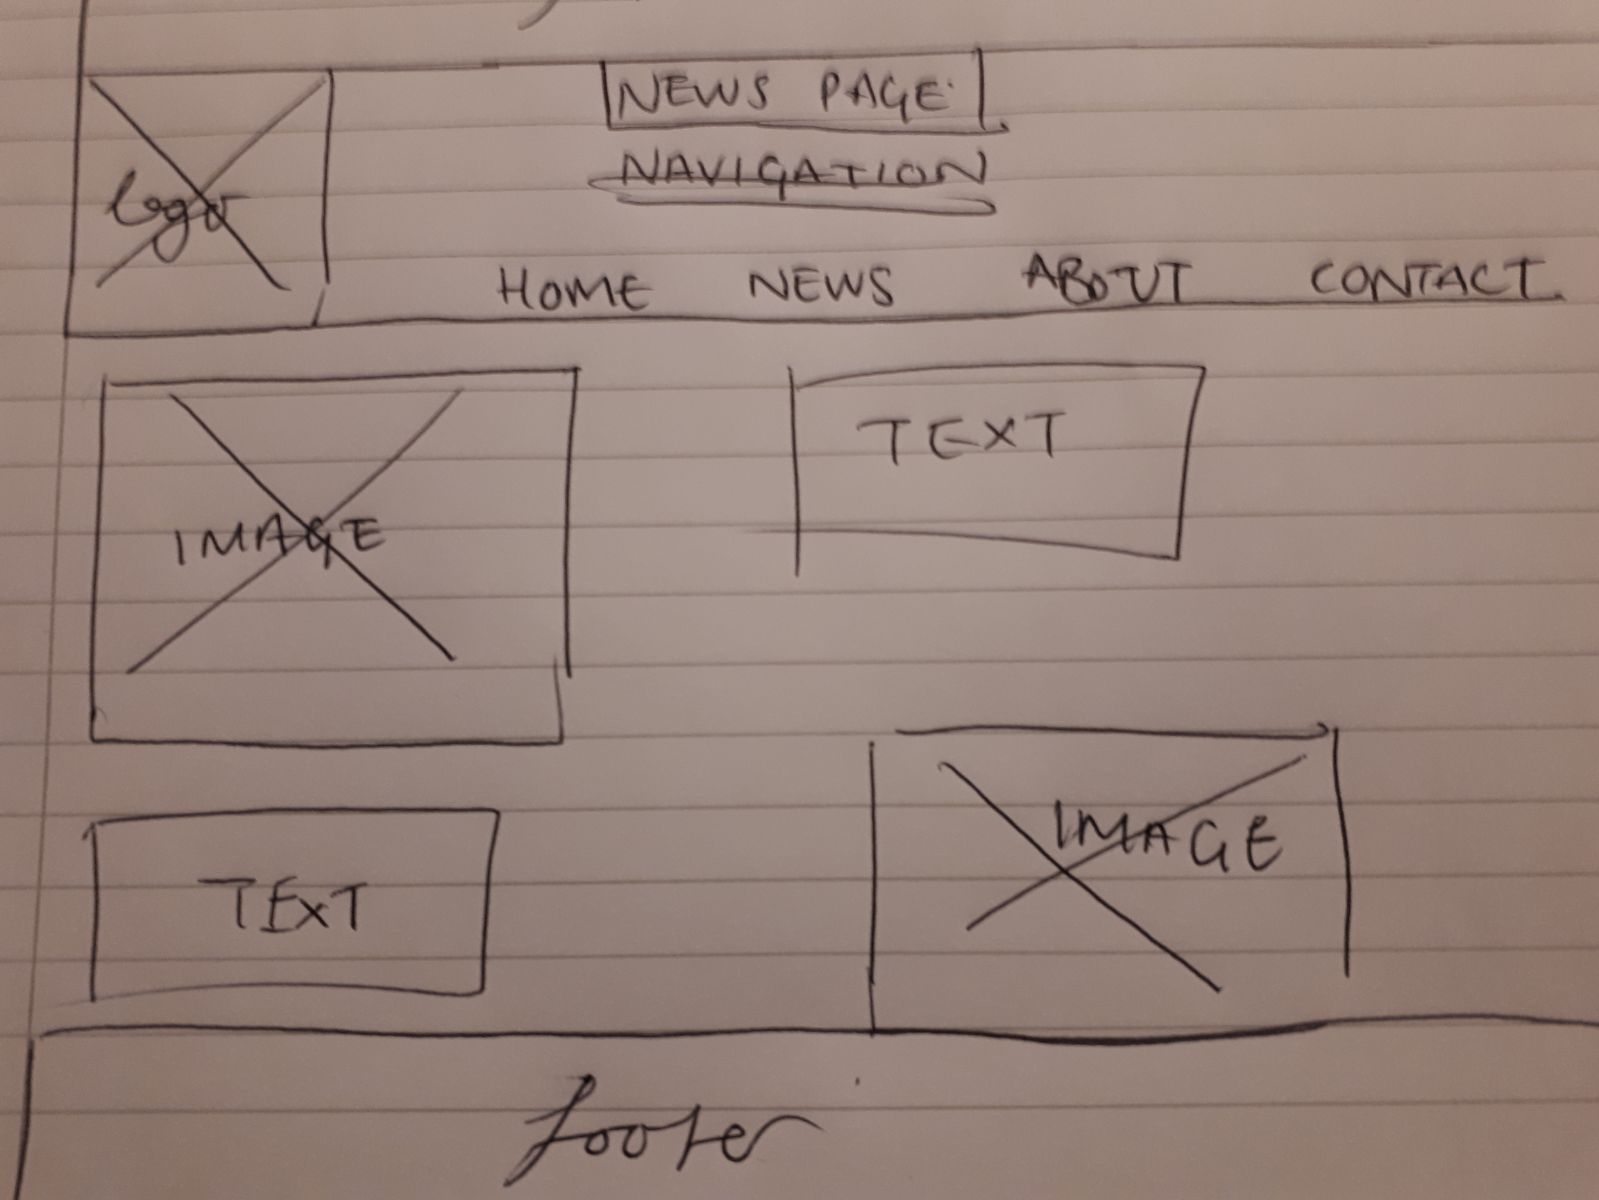 NEWS PAGE
NAVIGATION
logo
HOME NEWS ABOUT CONTACT
IMAGE
TEXT
TEXT
IMAGE
footer